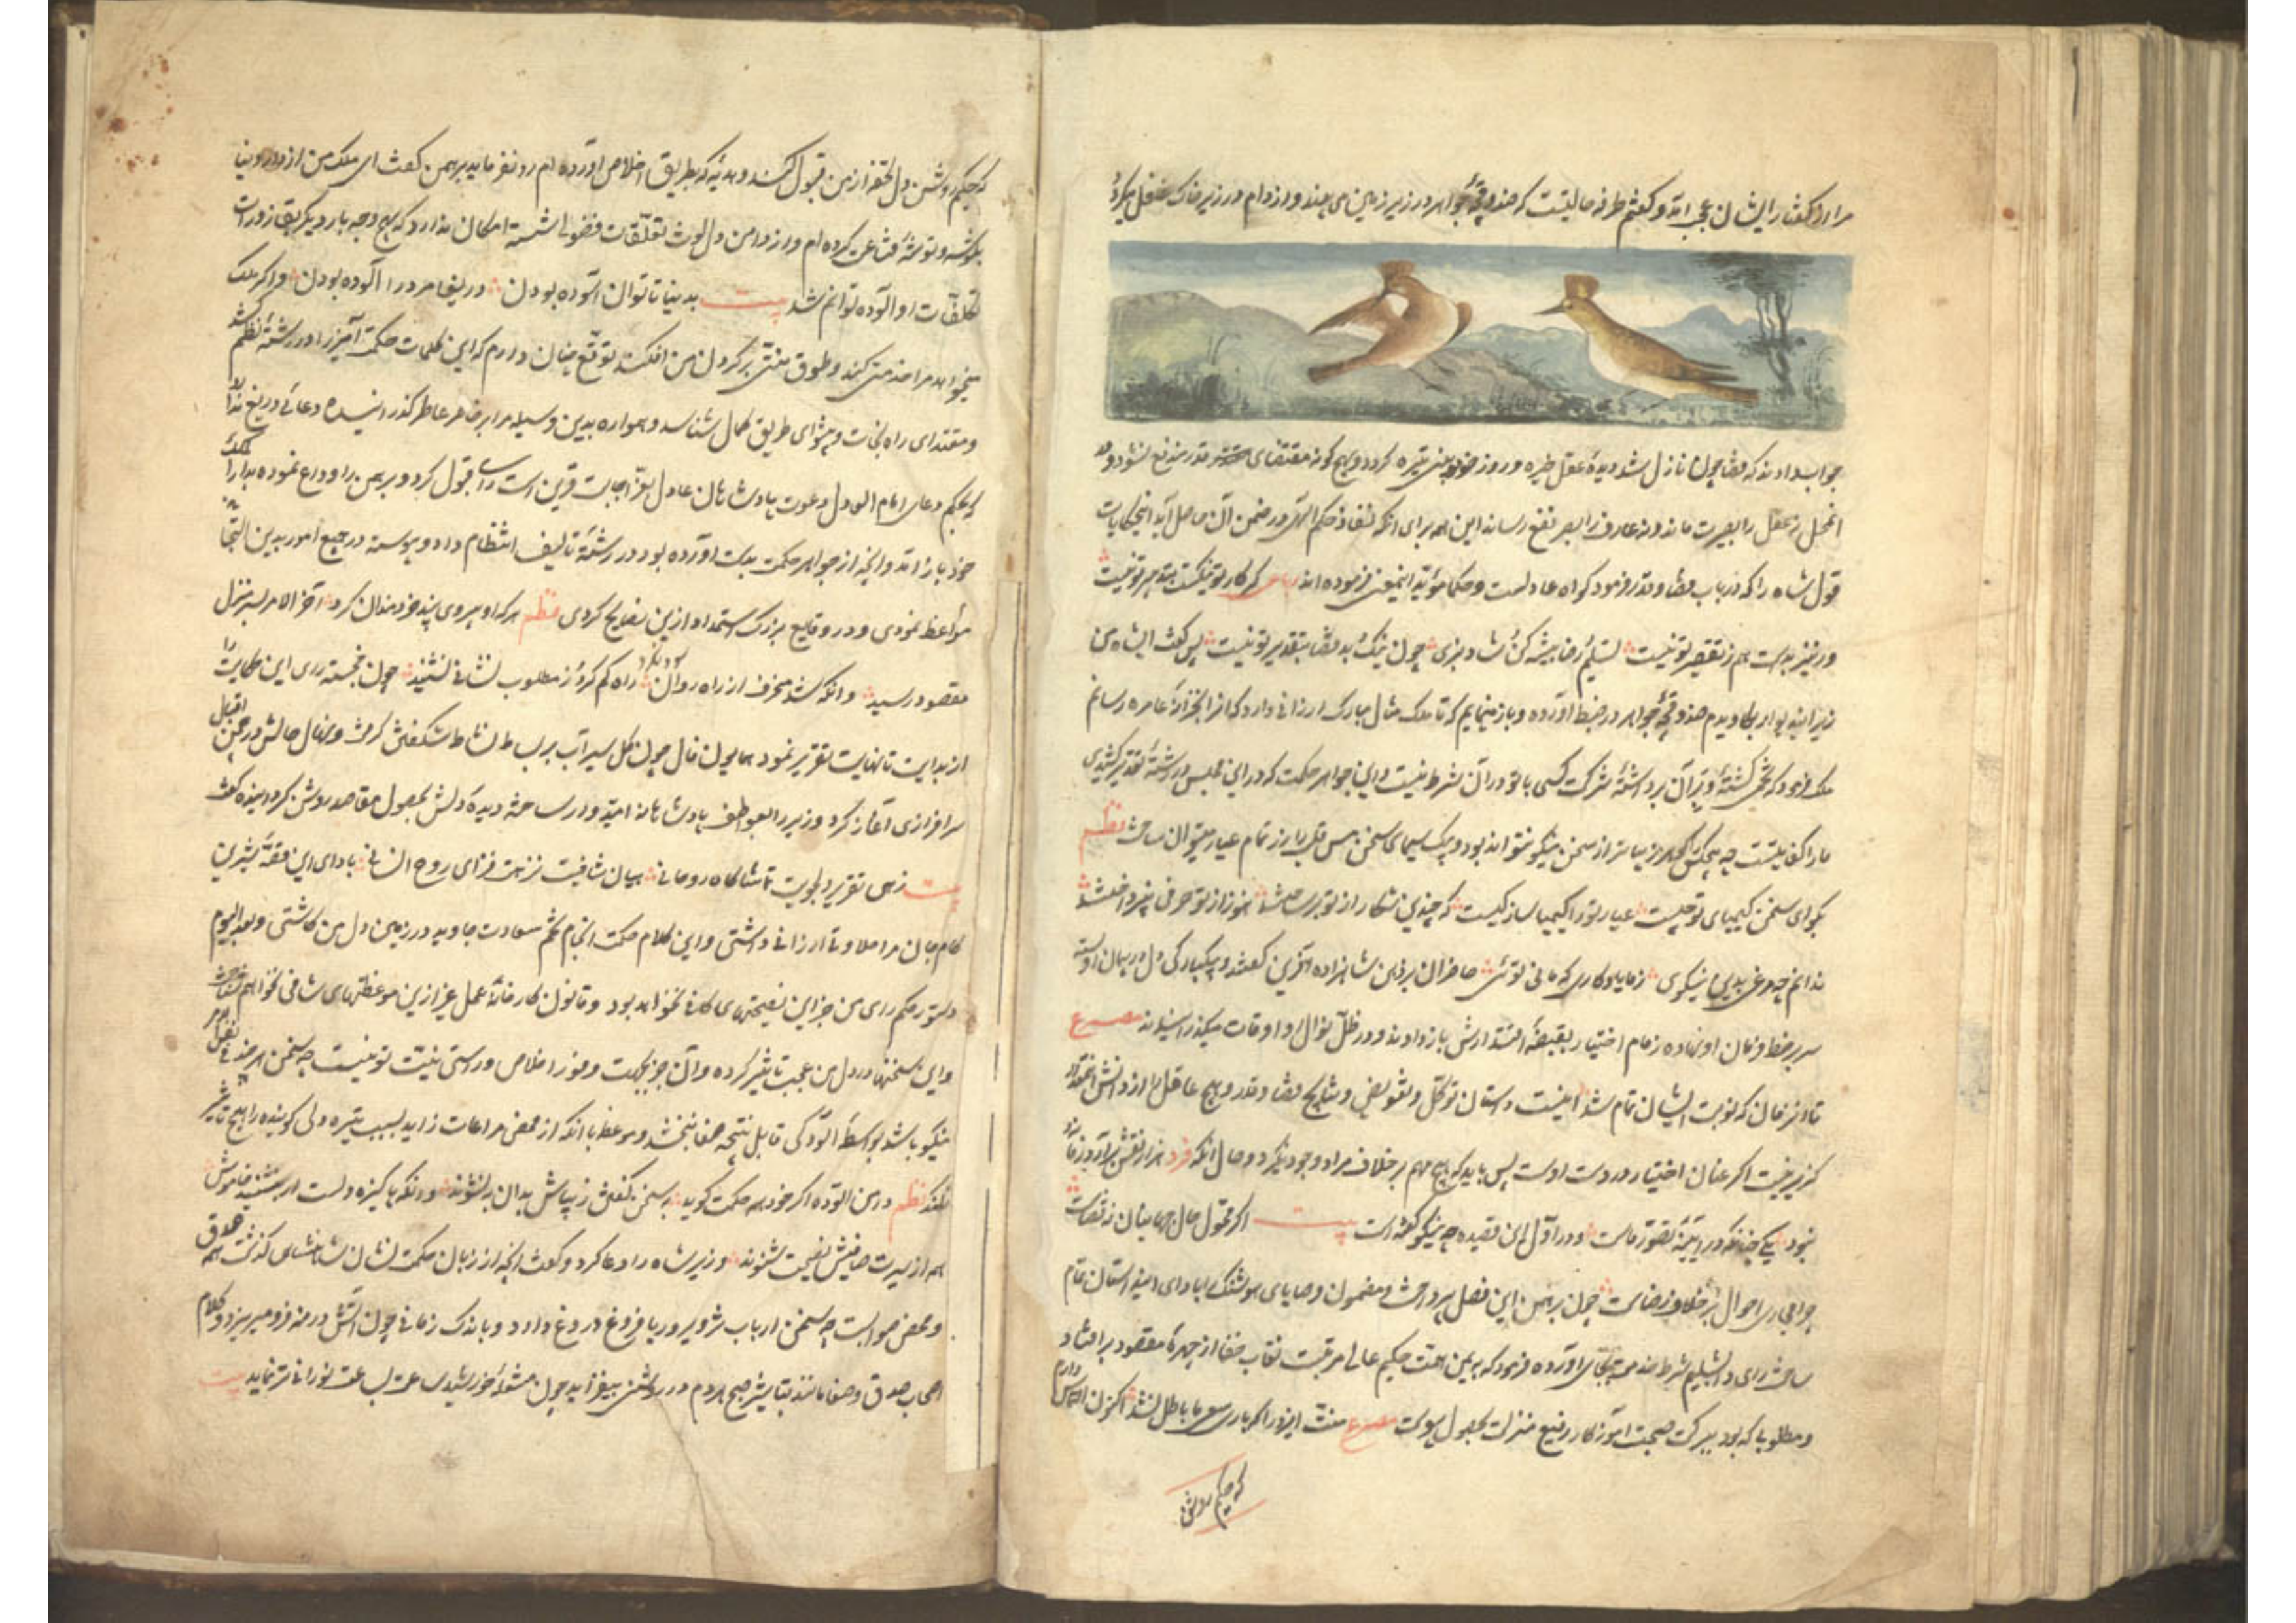 مرا از گفتار ایشان عجب آمد و گفتم طرفه حالیست که صندوقچهٔ جواهر در زیر زمین می بینند و از دام در زیر خاک غافل
جواب دادند که قضا چون نازل شد دیدهٔ عقل خیره و روز تیره گردد و بهیچ گونه مقتضای قدر مندفع نشود و در
انمحل نه عاقل را بصیرت ماند و نه عارف را بصر نفع رساند این همه برای آنکه نفاذ حکم الهی در ضمن آن حاصل آید
قول شاه را که در باب قضا و قدر فرمود گواه عادلست و حکما مؤید اینمعنی فرموده اند رباعی گر کار تو نیکست بتدبیر تو نیست
ور نیز بدست هم ز تقصیر تو نیست تسلیم و رضا پیشه کن و شاد بزی چون نیک و بد قضا بتقدیر تو نیست پس گفت ای شاه من
زیر این دیوار بکاویدم صندوقچهٔ جواهر در ضبط آورده و باز مینمایم که تا ملک مثال مبارک ارزانی دارد که آنرا بخزانهٔ عامره رسانم
ملک فرمود که تخمی کشتهٔ و بر آن برداشتهٔ شرکت کسی با تو در آن شرط نیست و این جواهر حکمت که در این مجلس در رشتهٔ تقدیر کشیدی
ما را کفایتست چه هیچکس گوهر زیباتر از سخن نیکو نتواند بود و بیک سیمای سخن مس قلب را زر تمام عیار میتوان ساخت نظم
بگو ای سخن کیمیای تو چیست عیار تو را کیمیا ساز کیست که چندین نگار از تو برساختند هنوز از تو حرفی نپرداختند
ندانم چه مرغی بدین نیکوی ز ما یادگاری که مانی توئی حاضران بر ذهن شاهزاده آفرین گفتند و بیکبارگی دل در پیمان او بسته
سر بر خط فرمان او نهاده زمام اختیار بقبضهٔ اقتدارش باز دادند و در ظل نوال او اوقات میگذرانیدند مصرع
تا آنزمان که نوبت ایشان تمام شد اینست داستان توکل و تفویض و نتایج قضا و قدر و هیچ عاقل را از دانش آنقدر
گزیر نیست اگر عنان اختیار در دست اوست پس باید که هیچ مهم بر خلاف مراد وجود نگیرد و حال آنکه فرد هزار نقش برآرد زمانه
نبود یکی چنانکه در آیینهٔ تصور ماست و در اول این قصیده چه نیکو گفته است بیت اگر محول حال جهانیان نه قضاست
چرا مجاری احوال بر خلاف رضاست چون برهمن این فصل بپرداخت و مضمون وصایای هوشنگ را بادای این داستان تمام
ساخت رای دابشلیم شرط خدمت بجای آورده فرمود که بیمن همت حکیم عالی مرتبت نقاب خفا از چهرهٔ مقصود برافتاد
و مطلوبی که بود ببرکت صحبت آموزگار رفیع منزلت بحصول پیوست مصرع منت ایزد را که باری سعی ما باطل نشد اکنون التماس دارم
که حکیم روشن
که حکیم روشن دل تحفه از من قبول کند و هدیهٔ که بطریق اخلاص آورده ام رد نفرماید برهمن گفت ای ملک من از دنیا
بگوشه و توشهٔ قناعت کرده ام و دامن دل از لوث تعلقات فضول شسته امکان ندارد که بهیچ وجه بار دیگر بقاذورات
تکلفات او آلوده توانم شد بیت بدنیا تا توان آسوده بودن دریغا مر درا آلوده بودن و اگر ملک
میخواهد مرا خدمتی کند و طوق منتی بر گردن من افکند توقع چنان دارم که این کلمات حکمت آمیز را در رشتهٔ نظم کشد
و مقتدای راه نجات و پیشوای طریق کمال شناسد و همواره بدین وسیله مرا بر خاطر عاطر گذرانیده دعائی دریغ ندارد
که بحکم دعای امام العادل دعوت پادشاهان عادل بعز اجابت قرین است رای قبول کرد و برهمن را وداع نموده بدار الملک
خود باز آمد و آنچه از جواهر حکمت بدست آورده بود در رشتهٔ تألیف انتظام داد و پیوسته در جمیع امور بدین التجا
مواعظ نمودی و در وقایع بزرگ استمداد ازین نصایح کردی نظم هر که او پیروی پند خردمندان کرد آخر الامر بسر منزل
مقصود رسید و آنکه شد منحرف از راه روان راه گم کرد و ز مطلوب نشانی نشنید چون خجسته رای این حکایت را
از بدایت تا نهایت تقریر نمود همایون فال چون گل سیراب بر بساط نشاط شکفتن گرفت و نهال حالش در چمن اقبال
سرافرازی آغاز کرد و وزیر را بعواطف پادشاهانه امیدوار ساخته دیدهٔ دلش بحصول مقاصد روشن گردانیده گفت
بیت زهی تقریر دلجویت تماشاگاه روحانی بیان شافیت نزهت فزای روح انسانی بادای این قصهٔ شیرین
کام جان مرا حلاوتی ارزانی داشتی و این کلام حکمت انجام تخم سعادت جاوید در زمین دل من کاشتی و بعد الیوم
دستور حکمرای من جز این نصیحتهای کافی نخواهد بود و قانون کارخانهٔ عمل غیر ازین موعظتهای شافی نخواهم شناخت
و این سخنها در دل من عجب تأثیر کرده و آن جز بجهت وفور اخلاص و راستی نیت تو نیست چه سخن هر چند فی نفسه
نیکو باشد بواسطهٔ آلودگی قابل نتیجهٔ صفا نبخشد و موعظه با آنکه از محض مراعات زاید بسبب تیره دلی گوینده را هیچ تأثیر
نکند نظم دامن آلوده اگر خود همه حکمت گوید بسخن گفتن زیباش بدان به نشوند و آنکه پاکیزه دلست ار بنشیند خاموش
همه از سیرت صافیش نصیحت شنوند وزیر شاه را دعا کرد و گفت آنچه از زبان حکمت نشان شاهنشاهی گذشت همه صدق
و محض صوابست چه سخن ارباب تزویر و ریا فروغ دروغ دارد و باندک زمانی چون آتش در منه فرو میرد و کلام
اصحاب صدق و صفا مانند تباشیر صبح هر دم در روشنی بیفزاید چون مشعلهٔ خورشید ساعت بساعت نورانی تر نماید بیت